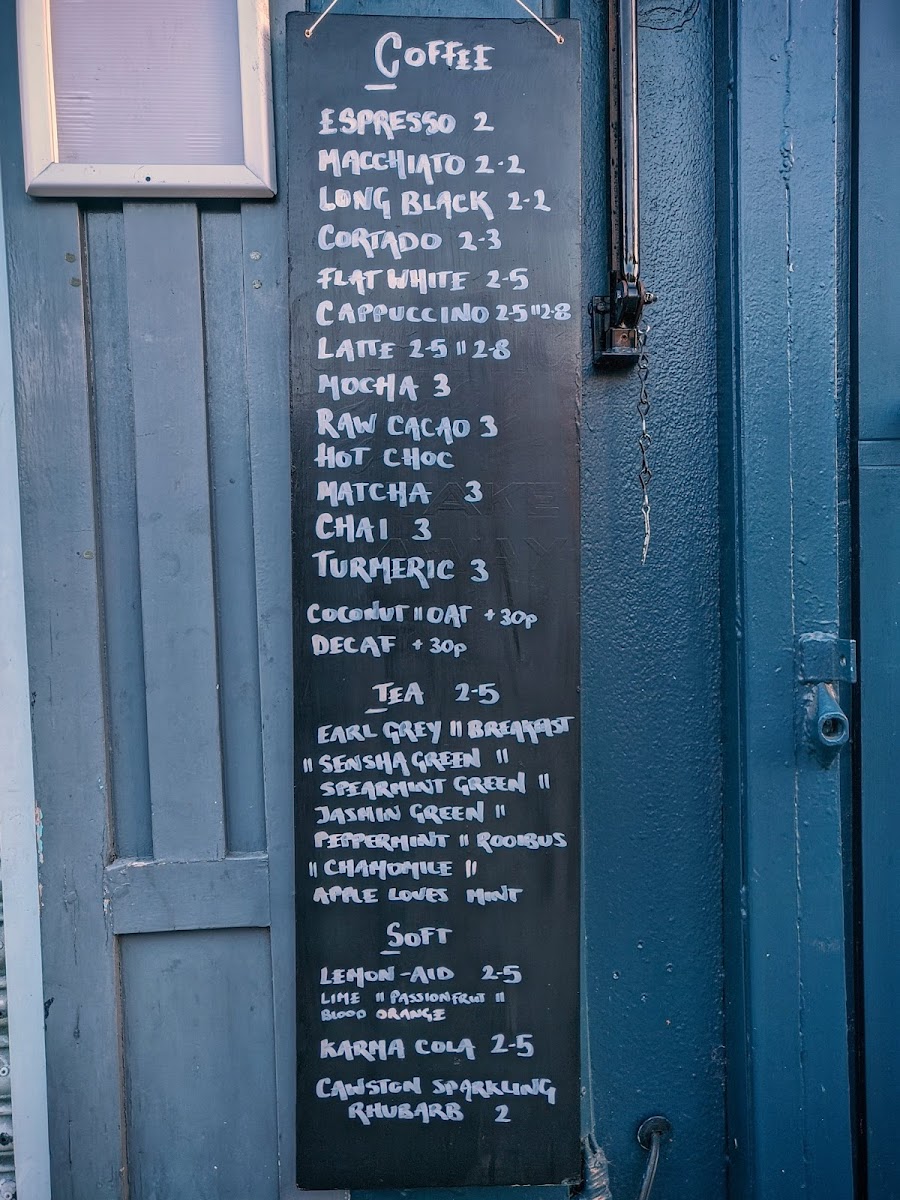 COFFEE
ESPRESSO 2
MACCHIATO 2-2
LONG BLACK 2-2
CORTADO 2-3
FLAT WHITE 2-5
CAPPUCCINO 2-5 || 2-8
LATTE 2-5 || 2-8
MOCHA 3
RAW CACAO 3
HOT CHOC
MATCHA 3
CHAI 3
TURMERIC 3
COCONUT || OAT +30p
DECAF +30p
TEA 2-5
EARL GREY || BREAKFAST
|| SENSHA GREEN ||
SPEARMINT GREEN ||
JASMIN GREEN ||
PEPPERMINT || ROOIBUS
|| CHAMOMILE ||
APPLE LOVES MINT
SOFT
LEMON-AID 2-5
LIME || PASSIONFRUT ||
BLOOD ORANGE
KARMA COLA 2-5
CAWSTON SPARKLING
RHUBARB 2